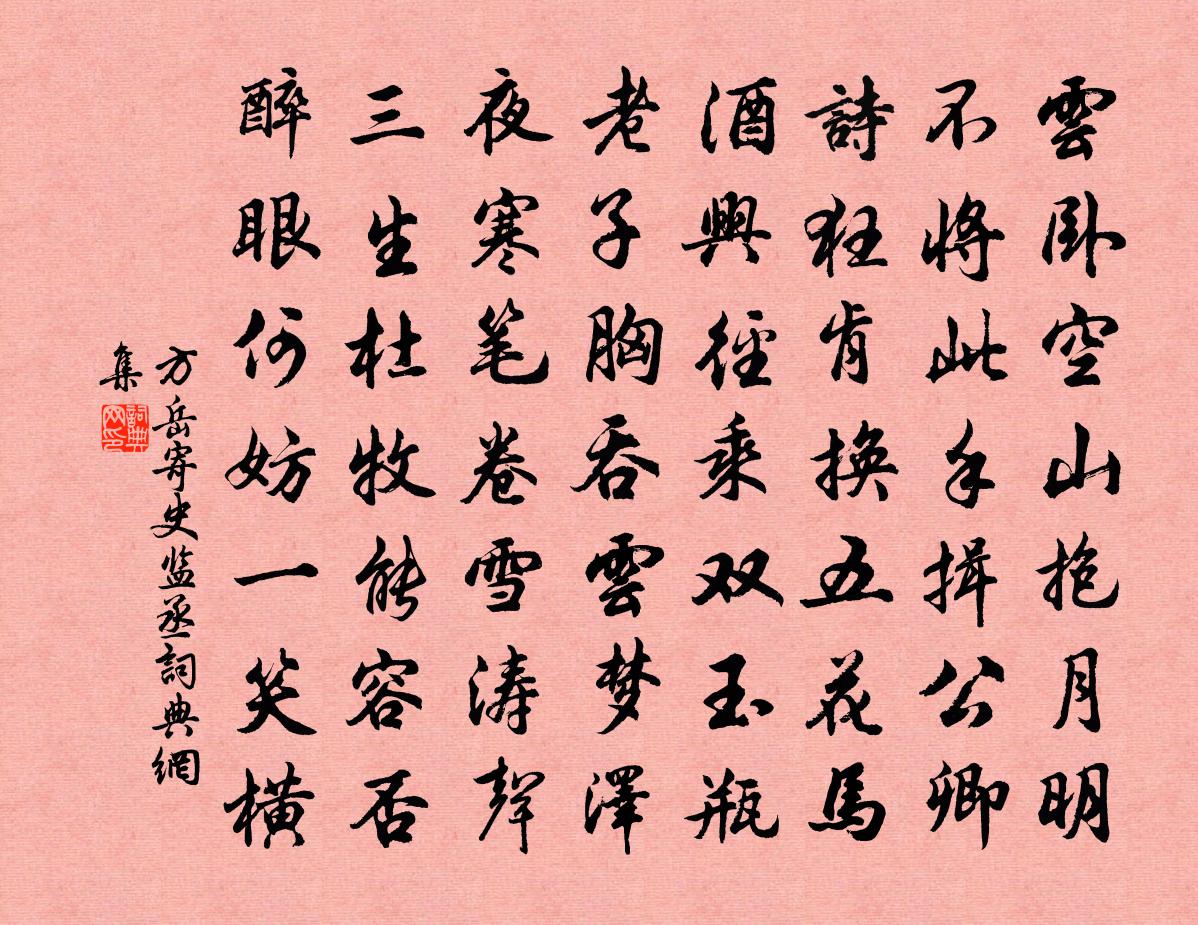 雲卧空山抱月明
不將此手揖公卿
詩狂肯換五花馬
酒興徑乘双玉瓶
老子胸吞雲夢澤
夜寒笔卷雪涛聲
三生杜牧能容否
醉眼何妨一笑橫
方岳寄史监丞詞典網
集
詞典
网印